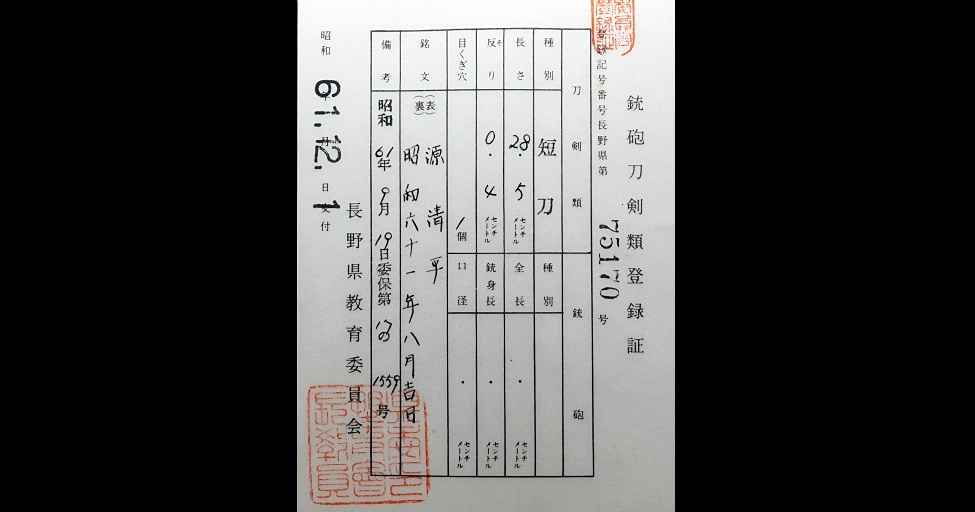 銃砲刀剣類登録証
登録記号番号長野県第 75170 号
刀剣類
銃砲
種別 短刀
長さ 28.5 センチメートル
反り そ 0.4 センチメートル
目くぎ穴 1個
種別
全長 . センチメートル
銃身長 . センチメートル
口径 . センチメートル
銘文 (表) 源清平
(裏) 昭和六十一年八月吉日
備考 昭和61年9月19日委保第 の 1559号
長野県教育委員会
昭和 61年12.月 1日交付